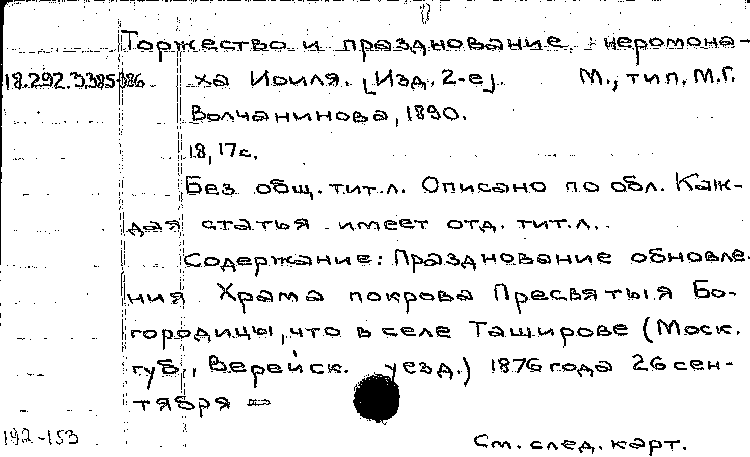 Торжество и празднование иеромона-
18.292.3.385-386 ха Иоиля. [Изд. 2-е]. М., тип. М.Г.
Волчанинова, 1890.
18, 17 с.
Без общ. тит. л. Описано по обл. Каж-
дая статья имеет отд. тит. л.
Содержание: Празднование обновле-
ния Храма покрова Пресвятыя Бо-
городицы, что в селе Таширове (Моск.
губ., Верейск. уезд.) 1876 года 26 сен-
тября =
192-153
См. след. карт.